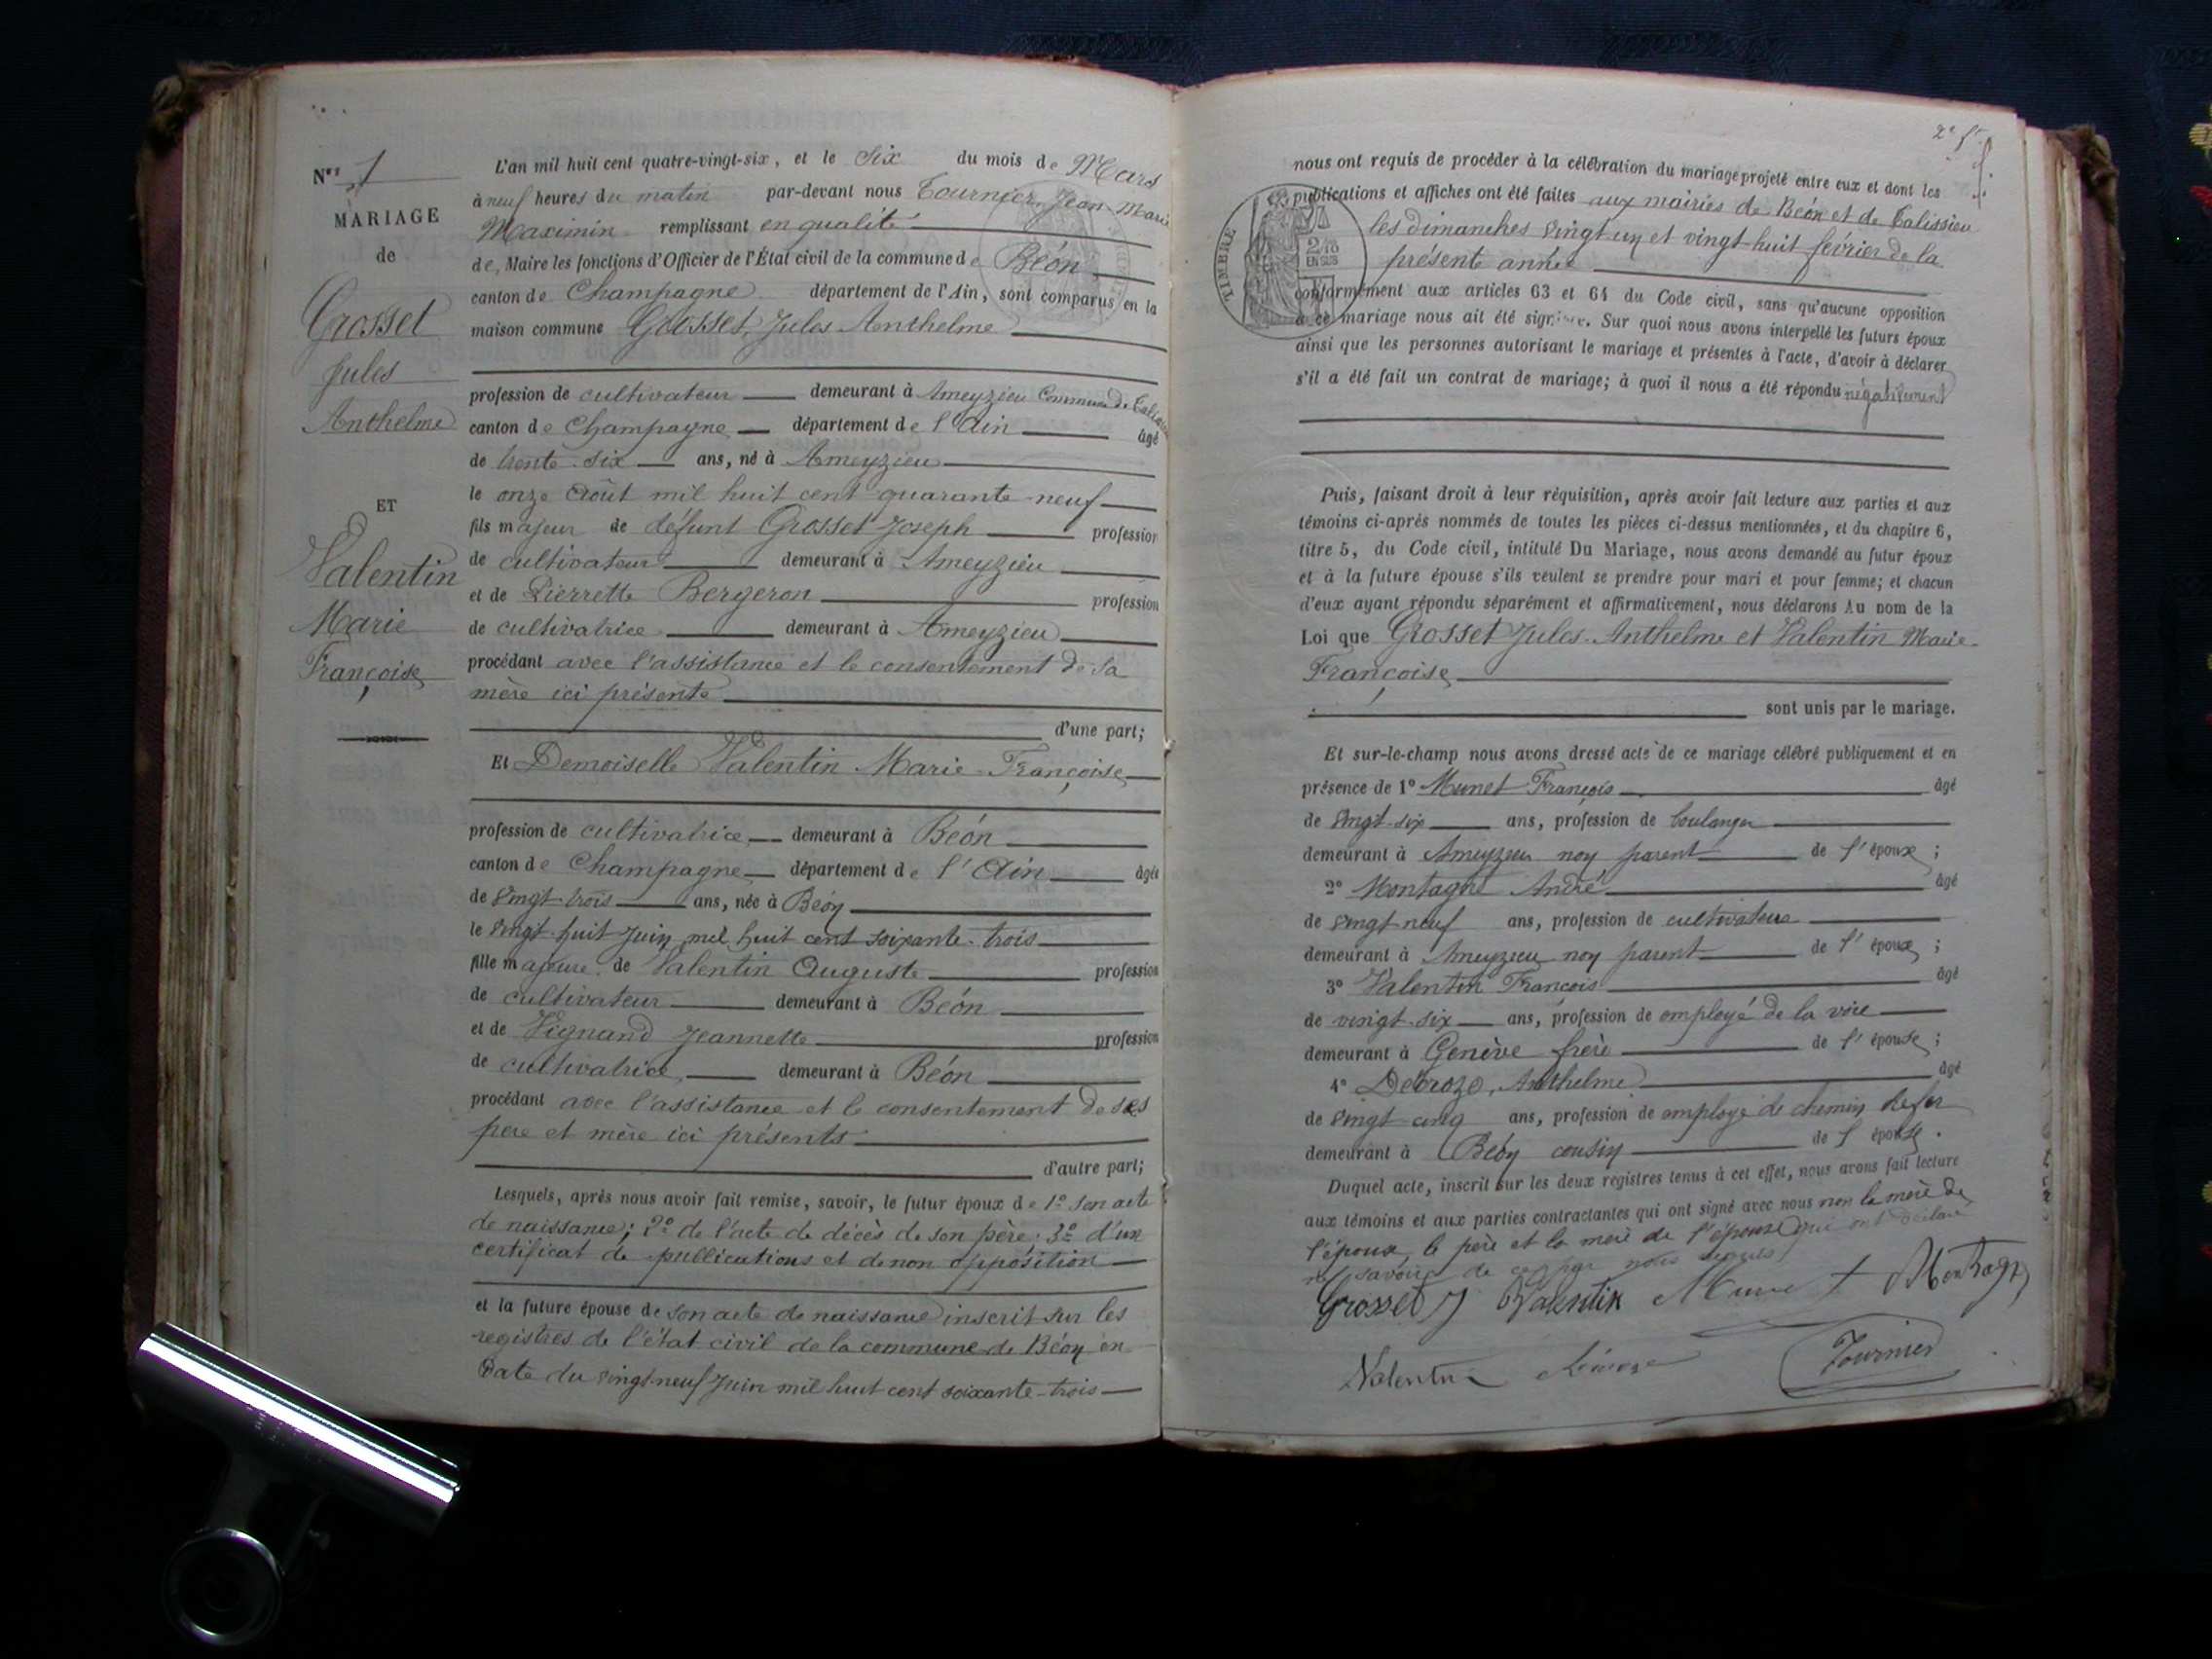 Nos 1
MARIAGE
de
Grosset
Jules
Anthelme
ET
Valentin
Marie
Françoise
L'an mil huit cent quatre-vingt-six, et le six du mois de Mars
à neuf heures du matin par-devant nous Tournier, Jean-Marie
Maximin remplissant en qualité
de, Maire les fonctions d'Officier de l'État civil de la commune de Béon
canton de Champagne département de l'Ain, sont comparus en la
maison commune Grosset, Jules Anthelme
profession de cultivateur demeurant à Ameyzieu Commune de
canton de Champagne département de l'Ain âgé
de trente-six ans, né à Ameyzieu
le onze Août mil huit cent quarante-neuf
fils majeur de défunt Grosset Joseph profession
de cultivateur demeurant à Ameyzieu
et de Pierrette Bergeron profession
de cultivatrice demeurant à Ameyzieu
procédant avec l'assistance et le consentement de sa
mère ici présente
d'une part;
Et Demoiselle Valentin Marie-Françoise
profession de cultivatrice demeurant à Béon
canton de Champagne département de l'Ain âgée
de vingt-trois ans, née à Béon
le vingt-huit Juin mil huit cent soixante-trois
fille majeure de Valentin Auguste profession
de cultivateur demeurant à Béon
et de Vignand Jeannette profession
de cultivatrice demeurant à Béon
procédant avec l'assistance et le consentement de ses
père et mère ici présents
d'autre part;
Lesquels, après nous avoir fait remise, savoir, le futur époux de 1° son acte
de naissance; 2° de l'acte de décès de son père; 3° d'un
certificat de publications et de non opposition
et la future épouse de son acte de naissance inscrit sur les
registres de l'état civil de la commune de Béon en
date du vingt-neuf Juin mil huit cent soixante-trois
nous ont requis de procéder à la célébration du mariage projeté entre eux et dont les
publications et affiches ont été faites aux mairies de Béon et de Talissieu
les dimanches vingt-un et vingt-huit février de la
présente année
conformément aux articles 63 et 64 du Code civil, sans qu'aucune opposition
à ce mariage nous ait été signifiée. Sur quoi nous avons interpellé les futurs époux
ainsi que les personnes autorisant le mariage et présentes à l'acte, d'avoir à déclarer
s'il a été fait un contrat de mariage; à quoi il nous a été répondu négativement
TIMBRE
EN SUS
Puis, faisant droit à leur réquisition, après avoir fait lecture aux parties et aux
témoins ci-après nommés de toutes les pièces ci-dessus mentionnées, et du chapitre 6,
titre 5, du Code civil, intitulé Du Mariage, nous avons demandé au futur époux
et à la future épouse s'ils veulent se prendre pour mari et pour femme; et chacun
d'eux ayant répondu séparément et affirmativement, nous déclarons Au nom de la
Loi que Grosset Jules-Anthelme et Valentin Marie-
Françoise
sont unis par le mariage.
Et sur-le-champ nous avons dressé acte de ce mariage célébré publiquement et en
présence de 1° Munet François âgé
de vingt-six ans, profession de boulanger
demeurant à Ameyzieu non parent de l'époux;
2° Montagnt André âgé
de vingt-neuf ans, profession de cultivateur
demeurant à Ameyzieu non parent de l'époux;
3° Valentin François âgé
de vingt-six ans, profession de employé de la voie
demeurant à Genève frère de l'épouse;
4° Anthelme âgé
de vingt cinq ans, profession de employé de chemin de fer
demeurant à Béon cousin de l'épouse.
Duquel acte, inscrit sur les deux registres tenus à cet effet, nous avons fait lecture
aux témoins et aux parties contractantes qui ont signé avec nous non la mère de
l'époux, le père et la mère de l'épouse qui ont déclaré
ne savoir de ce par nous requis
Grosset J Valentin Munet
Valentin Tournier